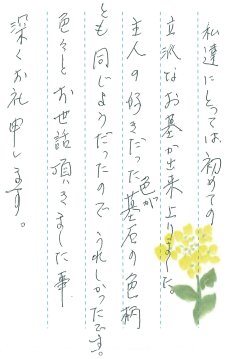 私達にとっては初めての
立派なお墓が出来上りました。
主人の好きだった色が墓石の色柄
とも同じようだったので うれしかったです。
色々とお世話頂いきました事
深くお礼申します。